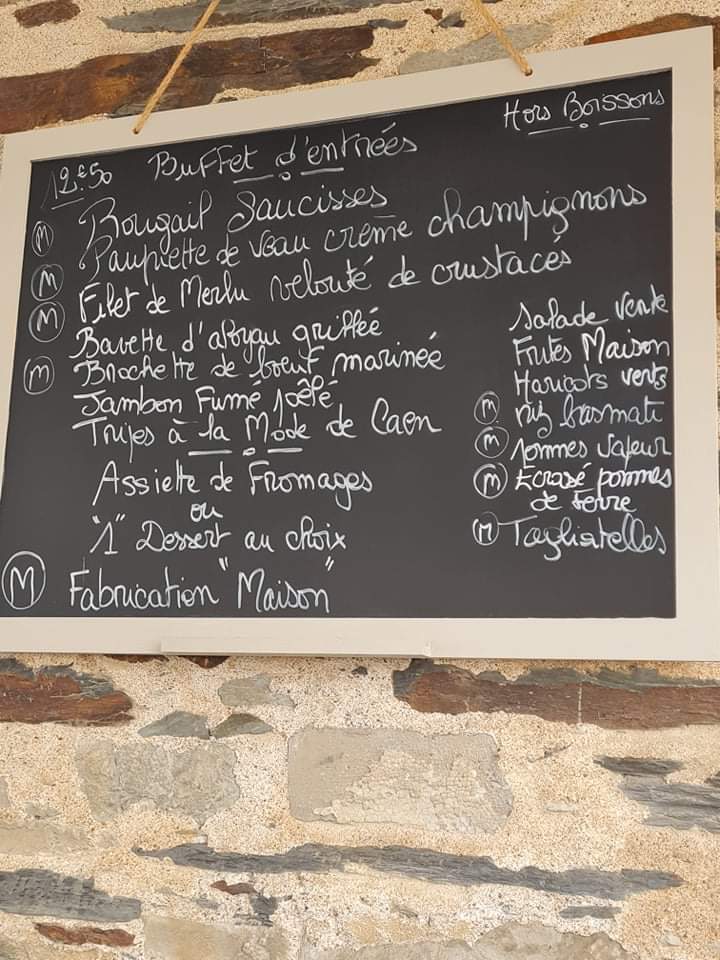 Hors Boissons
12€50 Buffet d'entrées
M Rougail Saucisses
Paupiette de veau crème champignons
M Filet de Merlu velouté de crustacés
M Bavette d'aloyau grillée
M Brochette de boeuf marinée
Jambon Fumé poêlé
Tripes à la Mode de Caen
Assiette de Fromages
ou
"1" Dessert au choix
M Fabrication "Maison"
Salade verte
Frites Maison
Haricots verts
M riz basmati
M pommes vapeur
M Ecrasé pommes
de terre
M Tagliatelles